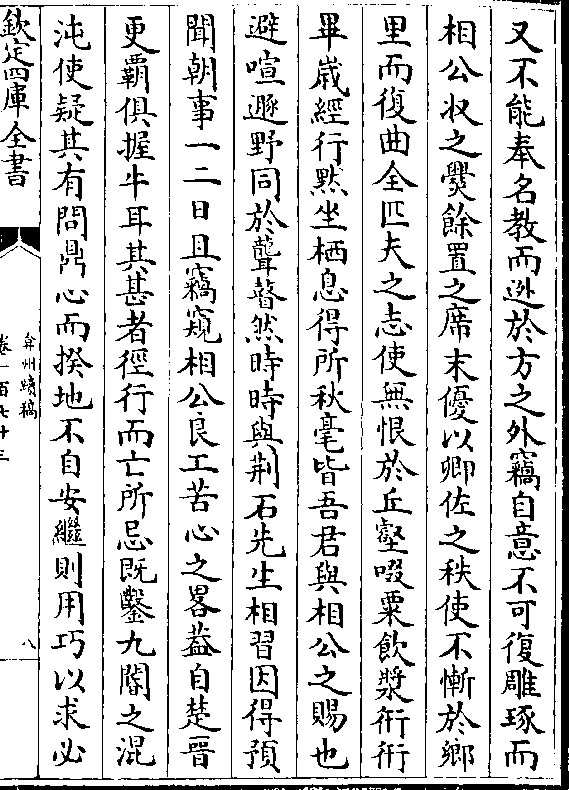 又不能奉名教而迯於方之外竊自意不可復雕琢而
相公収之㸑餘置之席末優以卿佐之秩使不慚於鄉
里而復曲全匹夫之志使無恨於丘壑啜粟飲漿衎衎
畢嵗經行黙坐栖息得所秋毫皆吾君與相公之賜也
避喧遯野同於聾瞽然時時與荆石先生相習因得預
聞朝事一二日且竊窺相公良工苦心之畧葢自楚晉
更覇俱握牛耳其甚者徑行而亡所忌既鑿九閽之混
沌使疑其有問鼎心而揆地不自安繼則用巧以求必
欽定四庫全書
弇州續稿
卷一百七十三
八